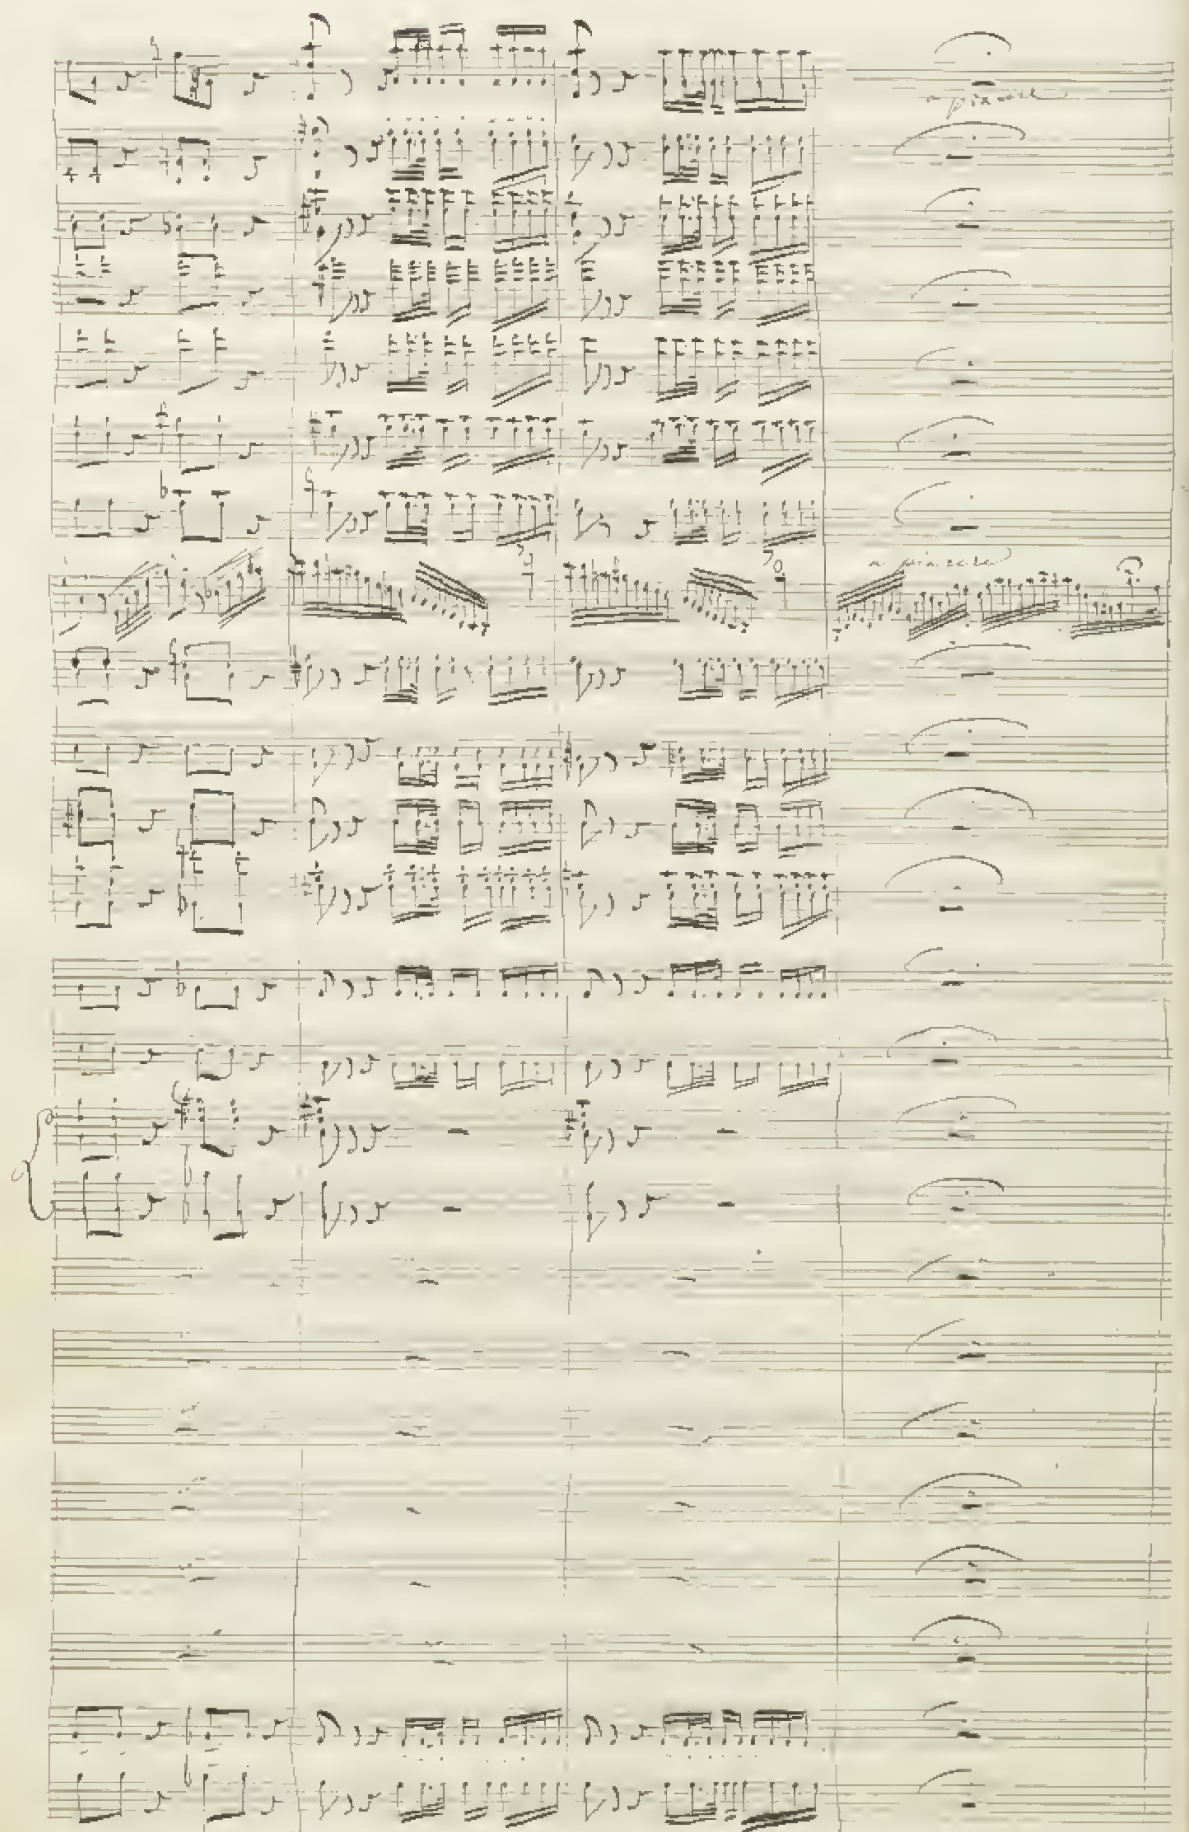 a piacere
a piacere